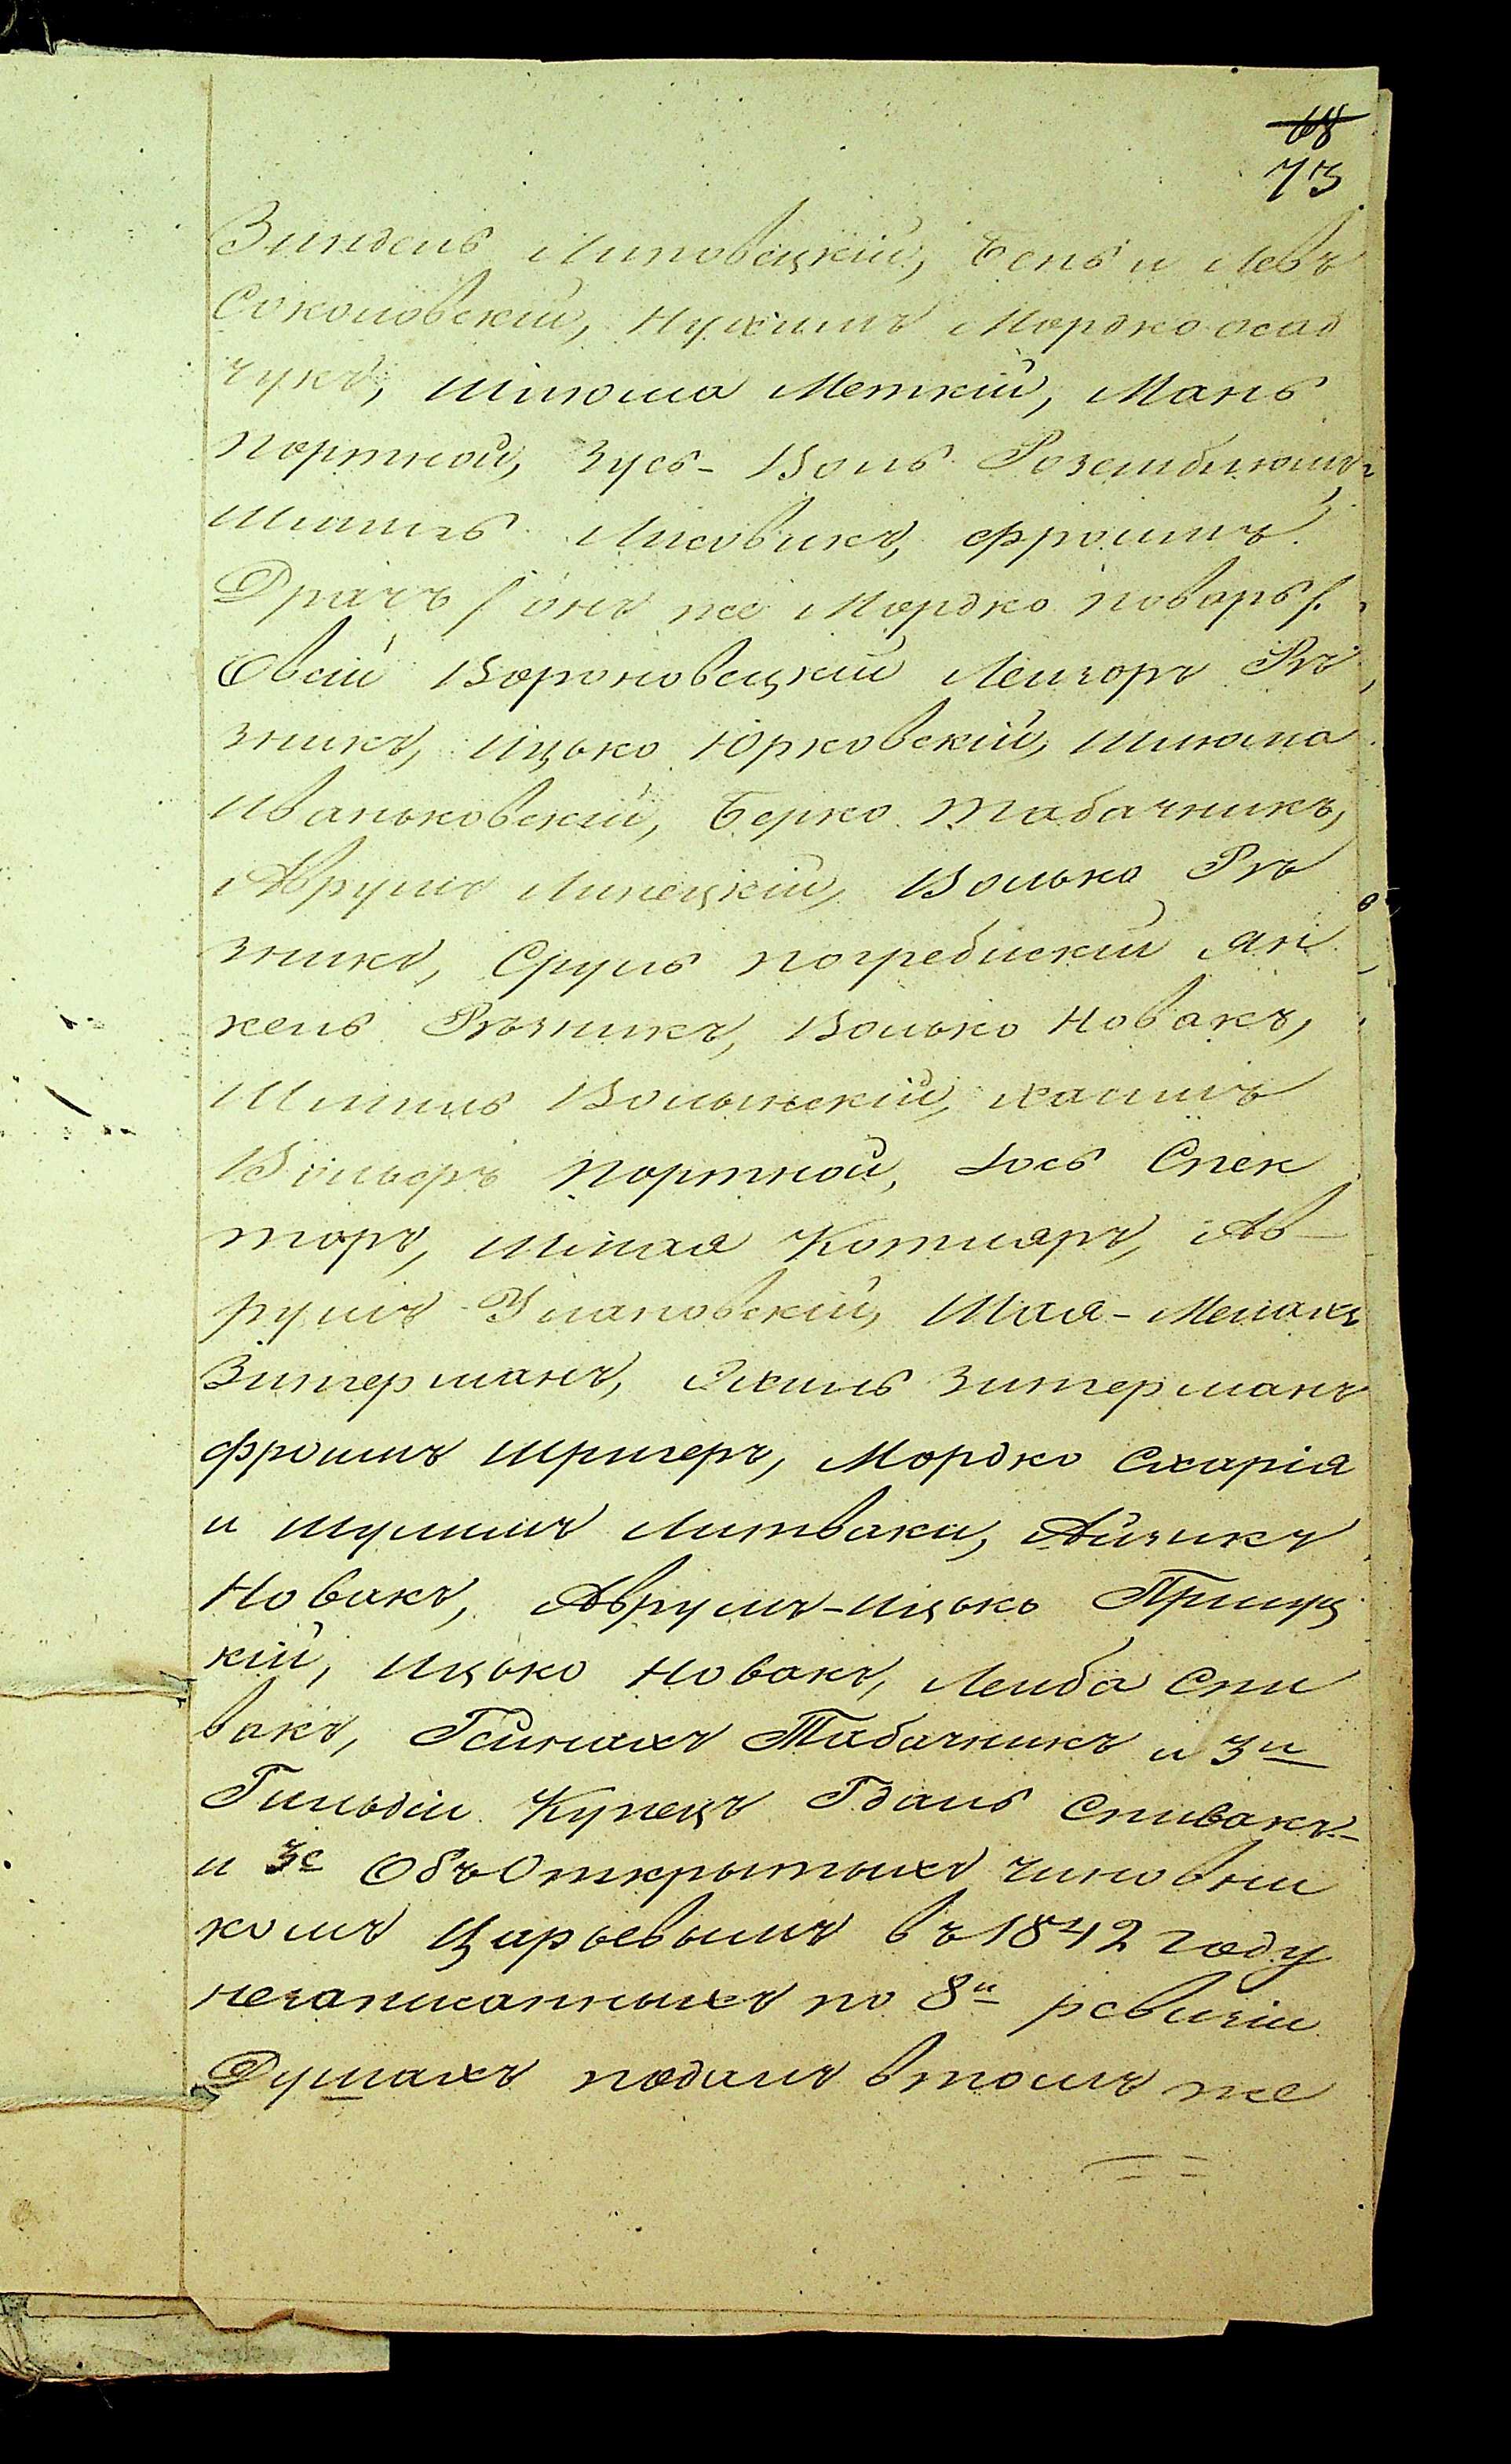 68
73
Зиндель Липовецкій, Бень и Левъ
Соколовскій, Нухимъ Мордко осад
чукъ, Шлома Меткій, Мань
портной, Зусь-Воль Розенблюмъ
Шмиль Лисовикъ, Фроимъ
Драчъ /онъ же Мордко поваръ/.
Овсій Вороновецкій Лейзоръ Рѣ
зникъ, Ицько Юрковскій, Шлюма
Иваньковскій, Берко Табачникъ,
Аврумъ Липецкій, Волько Рѣ
зникъ, Сруль погребискій Ян
кель Рѣзникъ, Волько Новакъ,
Шмиль Волынскій, Хаимъ
Вольфъ портной, Іось Спек
торъ, Шмая Котляръ, Ав-
румъ Улановскій, Шая-Мелахъ
Зингерманъ, Эхиль Зингерманъ
Фроимъ Шригеръ, Мордко Схарія
и Шулимъ Литваки, Айзикъ
Новакъ, Аврумъ-Ицько Прилуц
кій, Ицько Новакъ, Лейба Спи
вакъ, Гейнахъ Табачникъ и 3й
Гильдіи Купецъ Гдаль Спивакъ-
и 3е Объ Открытыхъ чиновни
комъ Царьевымъ въ 1842 году
незаписанныхъ по 8й ревизіи
Душахъ подалъ втомъ же